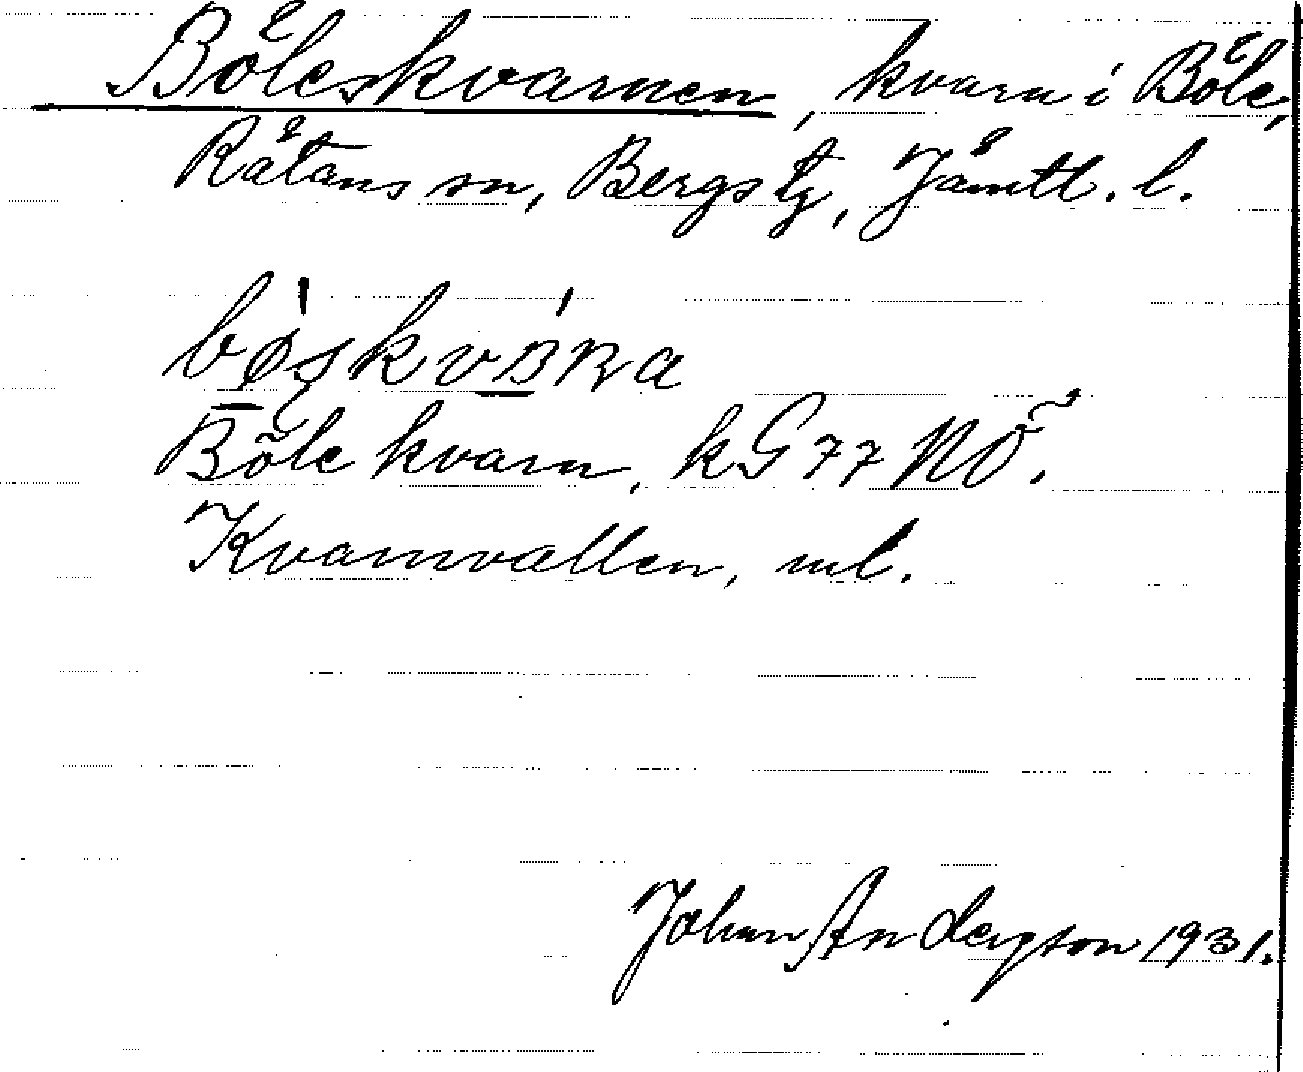 Böleskvarnen, kvarn i Böle,
Rätans sn, Bergs tg, Jämtl. l.
Böle kvarn, kG77NÖ.
Kvarnvallen, ml.
Johan Anderson 1931.